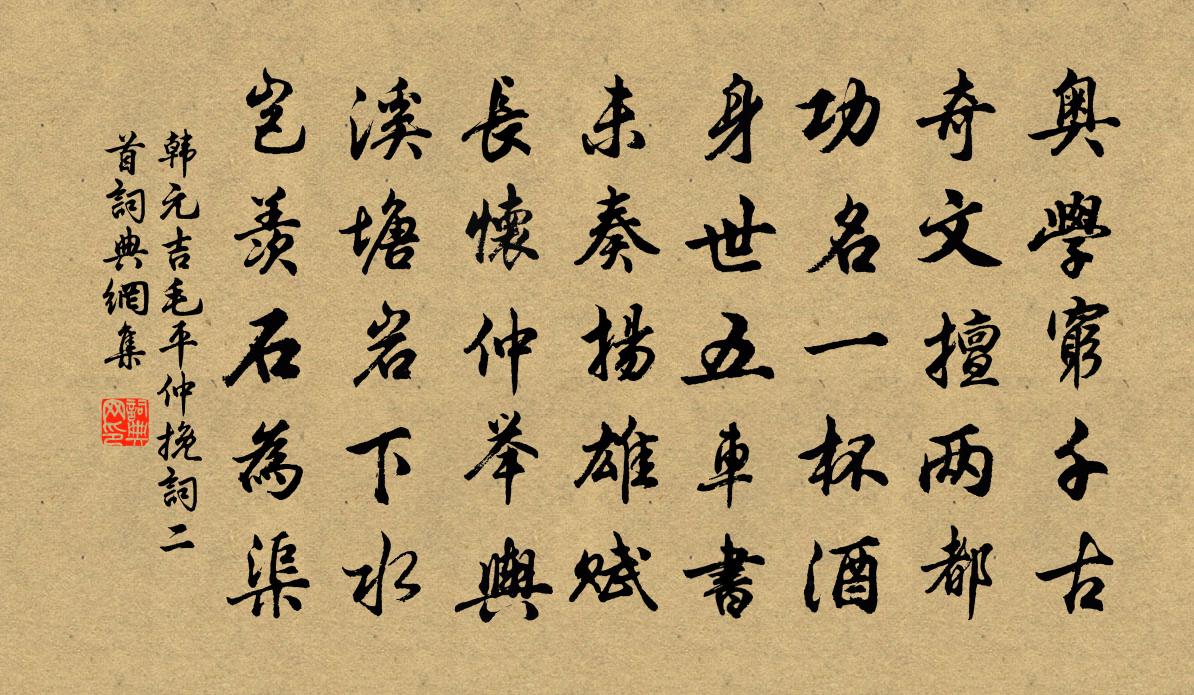 奥學窮千古
奇文擅两都
功名一杯酒
身世五車書
未奏揚雄賦
長懷仲举輿
溪塘岩下水
岂羨石為渠
韩元吉毛平仲挽詞二
首詞典網集
詞典
网印